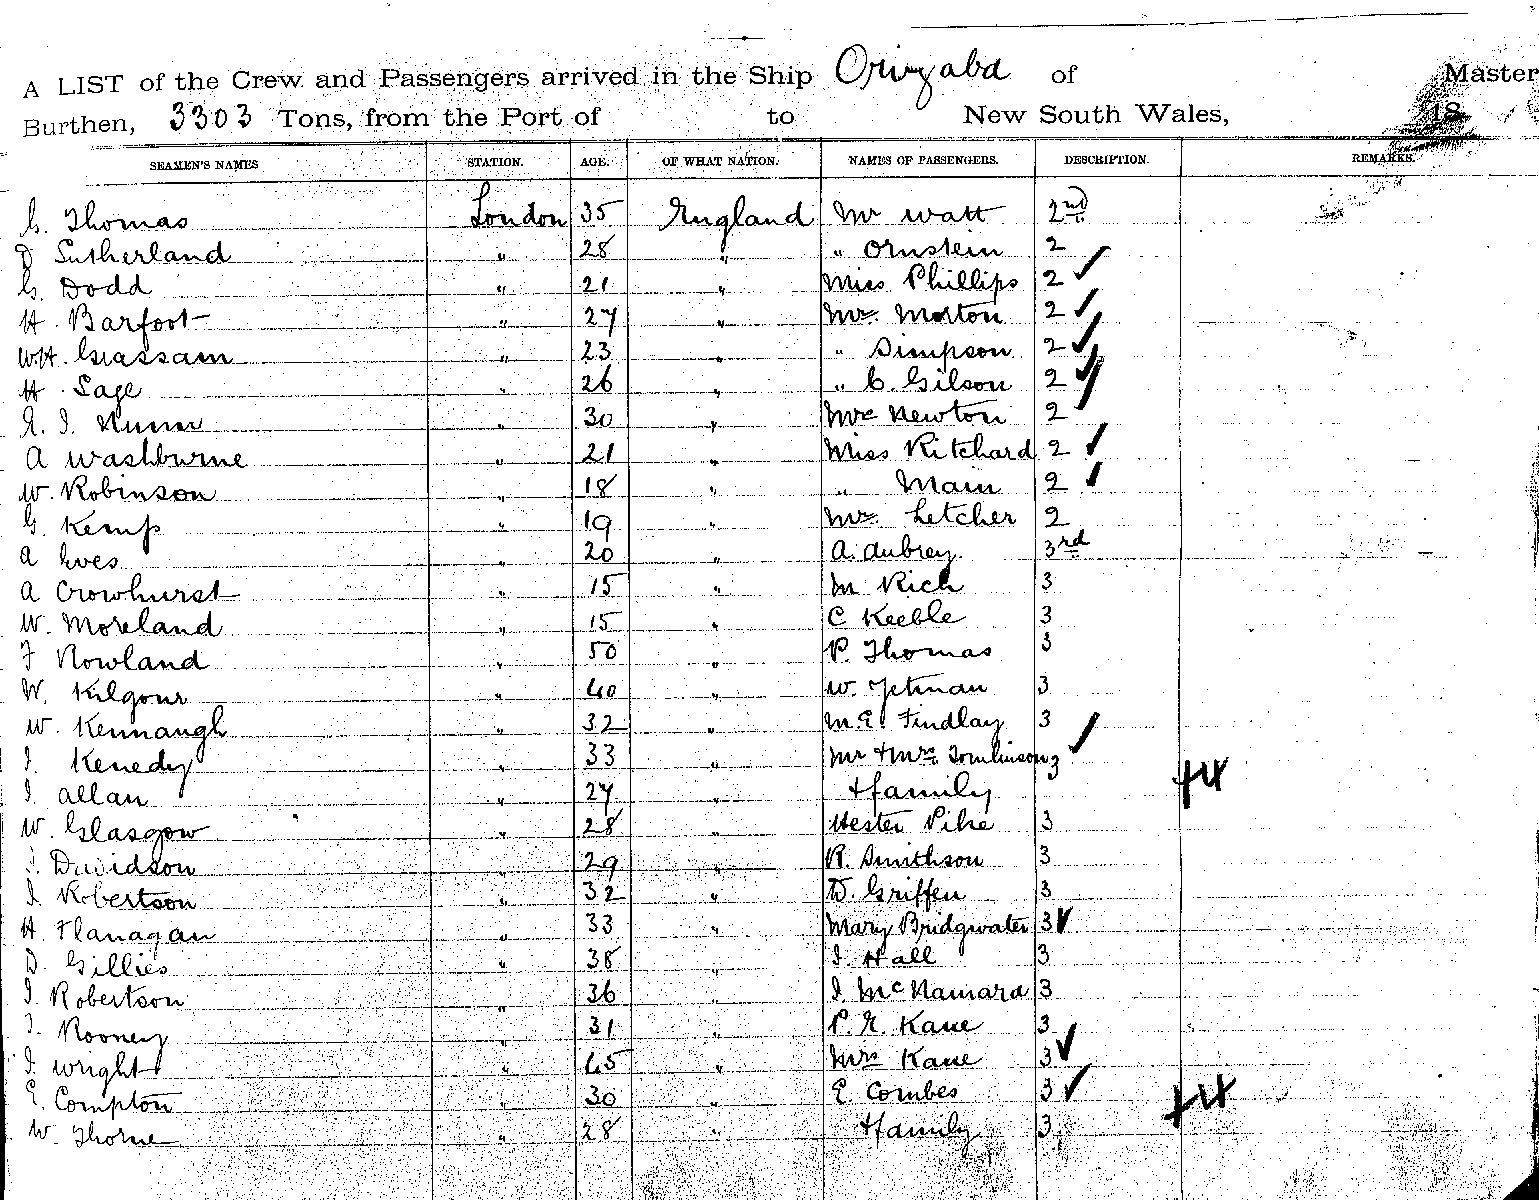 A LIST of the Crew and Passengers arrived in the Ship Orizaba of Master
Burthen, 3303 Tons, from the Port of to New South Wales, 18
SEAMEN'S NAMES STATION. AGE. OF WHAT NATION. NAMES OF PASSENGERS. DESCRIPTION. REMARKS.
G. Thomas London 35 England Mr Watt 2nd
D Sutherland " 28 " " Ornstein 2
G. Dodd " 21 " Miss Phillips 2 ✓
H. Barfoot " 27 " Mr. Morton 2 ✓
WH. Grassam " 23 " " Simpson 2 ✓
H. Sage " 26 " " C. Gilson 2 ✓
30 " Newton 2 ✓
A Washburne " 21 " Miss Ritchard 2 ✓
W. Robinson " 18 " " Main 2 ✓
G. Kemp " 19 " Letcher 2
A Eves " 20 " A. Aubrey. 3rd
A Crowhurst " 15 " M Rich 3
W. Moreland " 15 " C Keeble 3
F Rowland " 50 " P. Thomas 3
W. Kilgour " 40 " W. Yetman 3
W. Kennaugh " 32 " M. E. Findlay 3
J. Kenedy " 33 " Mr + Mrs. Tomlinson 3 ✓
J. Allan " 27 " + family
W. Glasgow " 28 " Hester Pike 3
J. Davidson " 29 " R. Smithson 3
J Robertson " 32 " D. Griffen 3
H. Flanagan " 33 " Mary Bridgwater 3 ✓
D. Gillies " 38 " J. Hall 3
J. Robertson " 36 " J. McNamara 3
J. Rooney " 31 " P. E. Kane 3
J. Wright " 45 " Mrs Kane 3 ✓
E. Compton " 30 " E Combes 3 ✓
W. Thorne " 28 " + family 3